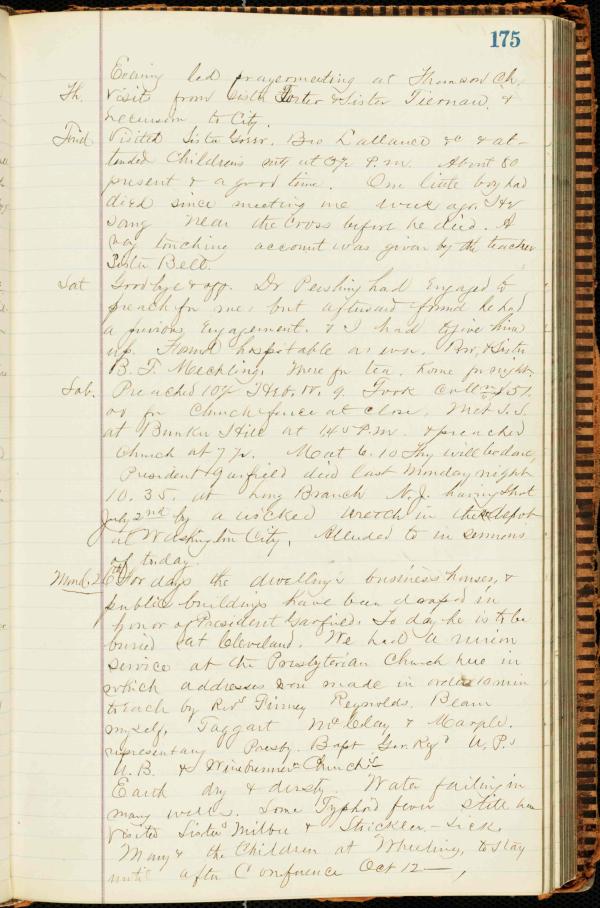 175
Evening led prayermeeting at Thomson Ch.
Th. Visits from Sister Foster & Sister Tiernan, &
recursion to City.
Frid. Visited Sister Greer. Bro Lallance &c & at-
tended Children's mtg at 3½ P.M. About 80
present & a good time. One little boy had
died since meeting me week ago. He
sang Near the Cross before he died. A
very touching account was given by the teacher
Sister Belt.
Sat Goodbye & off. Dr Pershing had engaged to
preach for me, but afterward found he had
a previous engagement. & I had to give him
up. Found hospitable as ever. Bro. & Sister
B. F. Mechling. Were for tea. home for night.
Sab. Preached 10½ Heb. IV. 9. Took Collⁿ $51.
00 for Church fence at close. Met S. S.
at Bunker Hill at 1.45 P.M. & preached
Church at 7½. Mat 6.10 Thy will be done,
President Garfield died last Monday night
10.35. at Long Branch N.J. having shot
July 2nd by a wicked wretch in the depot
at Washington City. Alluded to in sermons
of today.
Mond. 26th For days the dwellings business houses, &
public buildings have been draped in
honor of President Garfield. To day he is to be
buried at Cleveland. We had a union
service at the Presbyterian Church here in
which addresses were made in order 10 min
to each by Revs Finney Reynolds. Beam
myself, Taggart McClay & Marple.
representing Presby. Bapt Ger. Ref. U.P.s
U.B. & Winebrenner Church's
Earth dry & dusty. Water failing in
many wells. Some Typhoid fever still here
Visited Sisters Milbee & Strickler - Sick.
Mary & the Children at Wheeling, to stay
until after Conference Oct 12 —,